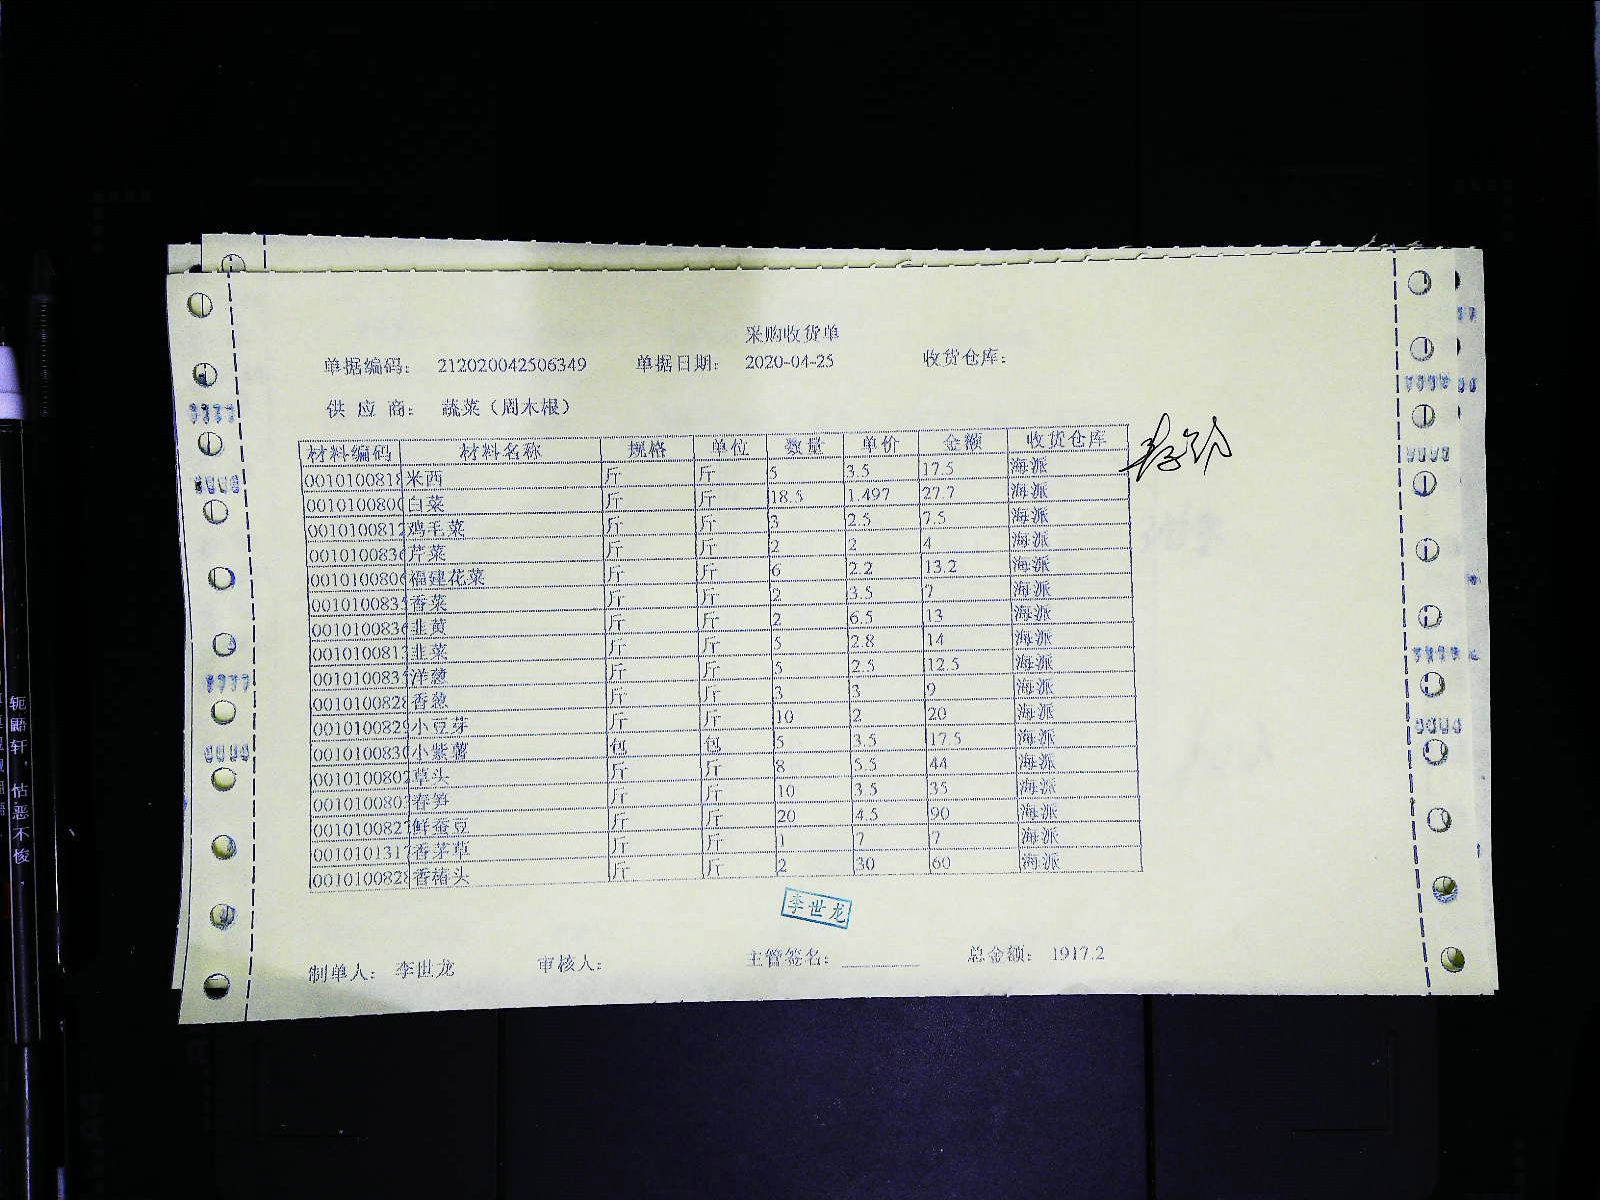 采购收货单
单据编码： 212020042506349 单据日期： 2020-04-25 收货仓库：
供 应 商： 蔬菜（周木根）
材料编码 材料名称 规格 单位 数量 单价 金额 收货仓库
0010100818 米西 斤 斤 5 3.5 17.5 海派
001010080 白菜 斤 斤 18.5 1.497 27.7 海派
001010081 鸡毛菜 斤 斤 3 2.5 7.5 海派
001010083 芹菜 斤 斤 2 2 4 海派
001010080 福建花菜 斤 斤 6 2.2 13.2 海派
001010083 香菜 斤 斤 2 3.5 7 海派
001010083 韭黄 斤 斤 2 6.5 13 海派
001010081 韭菜 斤 斤 5 2.8 14 海派
001010083 洋葱 斤 斤 5 2.5 12.5 海派
001010082 香葱 斤 斤 3 3 9 海派
001010082 小豆芽 斤 斤 10 2 20 海派
001010083 小紫薯 包 包 5 3.5 17.5 海派
001010080 草头 斤 斤 8 5.5 44 海派
001010080 春笋 斤 斤 10 3.5 35 海派
001010082 鲜蚕豆 斤 斤 20 4.5 90 海派
001010131 香茅草 斤 斤 1 7 7 海派
001010082 香椿头 斤 斤 2 30 60 海派
李世龙
制单人： 李世龙 审核人： 主管签名： 总金额： 1917.2
轭鼯轩，怙恶不悛，